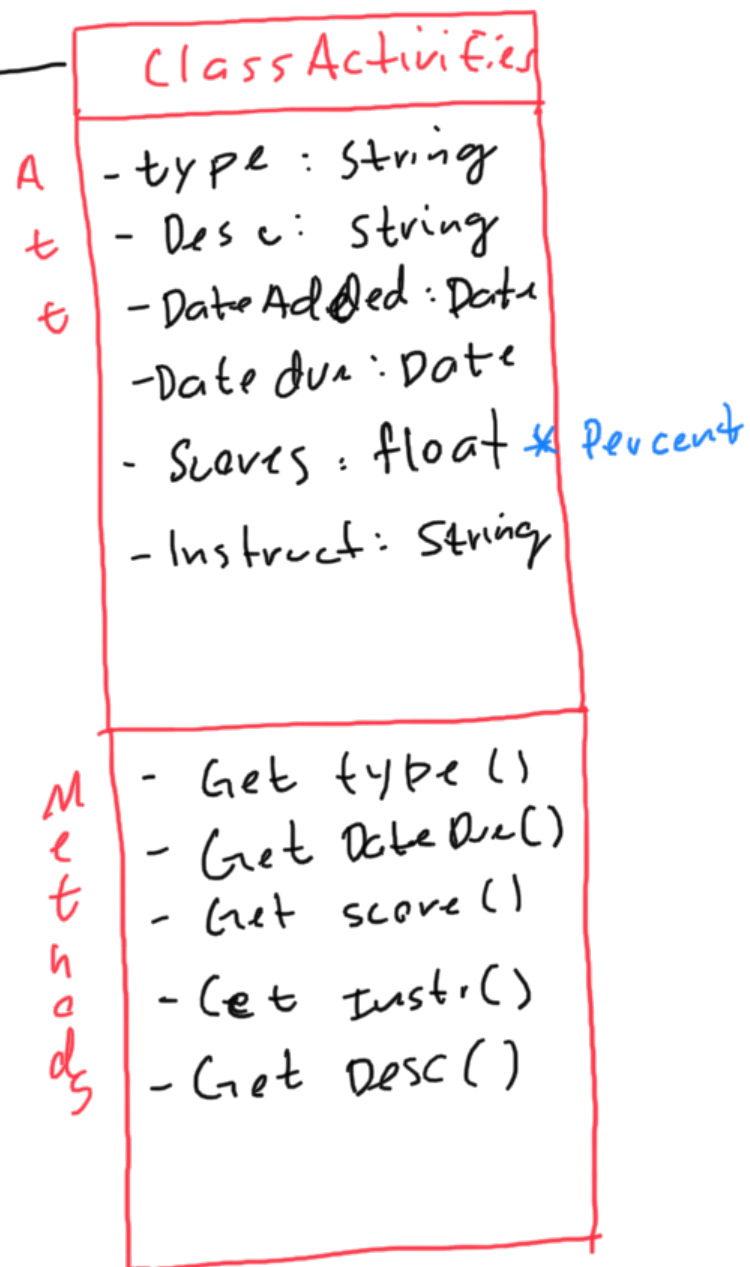 ClassActivities
Att
- type : String
- Desc : String
- DateAdded : Date
- Date due : Date
- Scores : float * Percent
- Instruct : String
Methods
- Get type ()
- Get DateDue()
- Get score ()
- Get Instr.()
- Get Desc ()